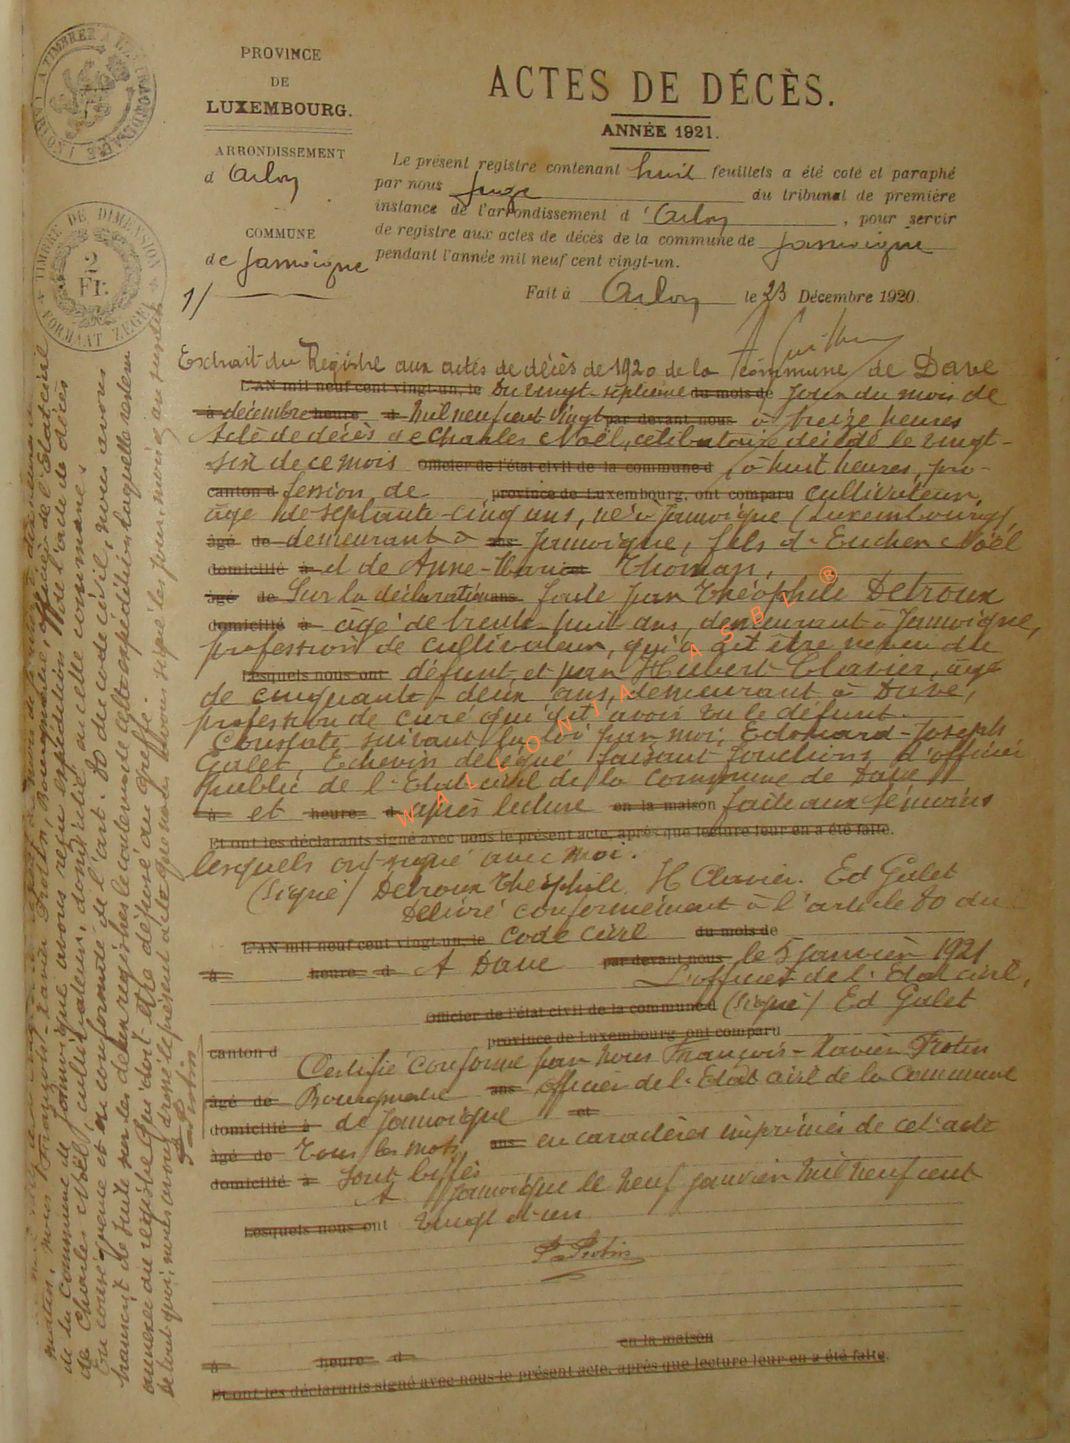 PROVINCE
DE
LUXEMBOURG.
ARRONDISSEMENT
d Arlon
COMMUNE
de Jamoigne
1/
TIMBRE DE DIMENSION
2
Fr.
FORMAAT ZEGEL
ACTES DE DÉCÈS.
ANNÉE 1921.
Le présent registre contenant huit feuillets a été coté et paraphé
par nous juge du tribunal de première
instance de l'arrondissement d 'Arlon , pour servir
de registre aux actes de décès de la commune de Jamoigne
pendant l'année mil neuf cent vingt-un.
Fait à Arlon le 23 Décembre 1920.
Extrait du Registre aux actes de décès de 1920 de la commune de Dave
L'AN mil neuf cent vingt-un, le Du vingt-septième du mois de jour du mois de
à décembre heure d mil neuf cent vingt par devant nous à treize heures
Acte de décès de Charles Noël, célibataire décédé le vingt-
six de ce mois Officier de l'état civil de la commune d à huit heures, pro-
canton d fession de province de Luxembourg, ont comparu cultivateur,
âgé de septante-cinq ans, né à Jamoigne (Luxembourg),
âgé de demeurant à ans Jamoigne, fils d'Eucher Noël
domicilié à et de Anne-Marie et Thomas,
âgé de Sur la déclaration ans faite par Théophile Detroux
domicilié à âgé de trente-huit ans, demeurant à Jamoigne,
profession de cultivateur, qui a dit être neveu du
Lesquels nous ont défunt et par Hubert Clavier, âgé
de cinquante-deux ans, demeurant à Dave,
profession de curé qui dit avoir vu le défunt.
Constaté suivant la loi par moi, Edouard-Joseph
Galet Echevin délégué faisant fonctions d'officier
public de l'Etat civil de la commune de Dave
à et heure d après lecture en la maison faite aux témoins
Et ont les déclarants signé avec nous le présent acte, après que lecture leur en a été faite.
lesquels ont signé avec moi.
(Signé) Detroux Théophile. H Clavier. Ed Galet
Délivré conformément à l'article 80 du
L'AN mil neuf cent vingt-un, le Code civil du mois de
à heure d A Dave par devant nous le 5 janvier 1921
L'officier de l'Etat civil,
Officier de l'état civil de la commune d (Signé) Ed Galet
province de Luxembourg, ont comparu
canton d Certifié conforme par nous François-Xavier Protin
âgé de Bourgmestre ans officier de l'Etat civil de la Commune
domicilié à de Jamoigne et
âgé de Tous les mots ans en caractères imprimés de cet acte
domicilié à sont biffés
A Jamoigne le neuf janvier mil neuf cent
Lesquels nous ont vingt et un
en la maison
à heure d
Et ont les déclarants signé avec nous le présent acte, après que lecture leur en a été faite.
matin, nous François-Xavier Protin, Bourgmestre, officier de l'Etat civil
de la Commune de Jamoigne avons reçu expédition de l'acte de décès
de Charles Noël, cultivateur, domicilié en cette commune.
En conséquence et en conformité de l'art. 80 du code civil, nous avons
transcrit de suite sur les deux registres le contenu de cette expédition laquelle restera
annexée au registre qui doit être déposé au greffe.
De tout quoi, nous avons dressé le présent acte que nous avons signé les jour, mois et an susdits
WALLONIA ASBL ®